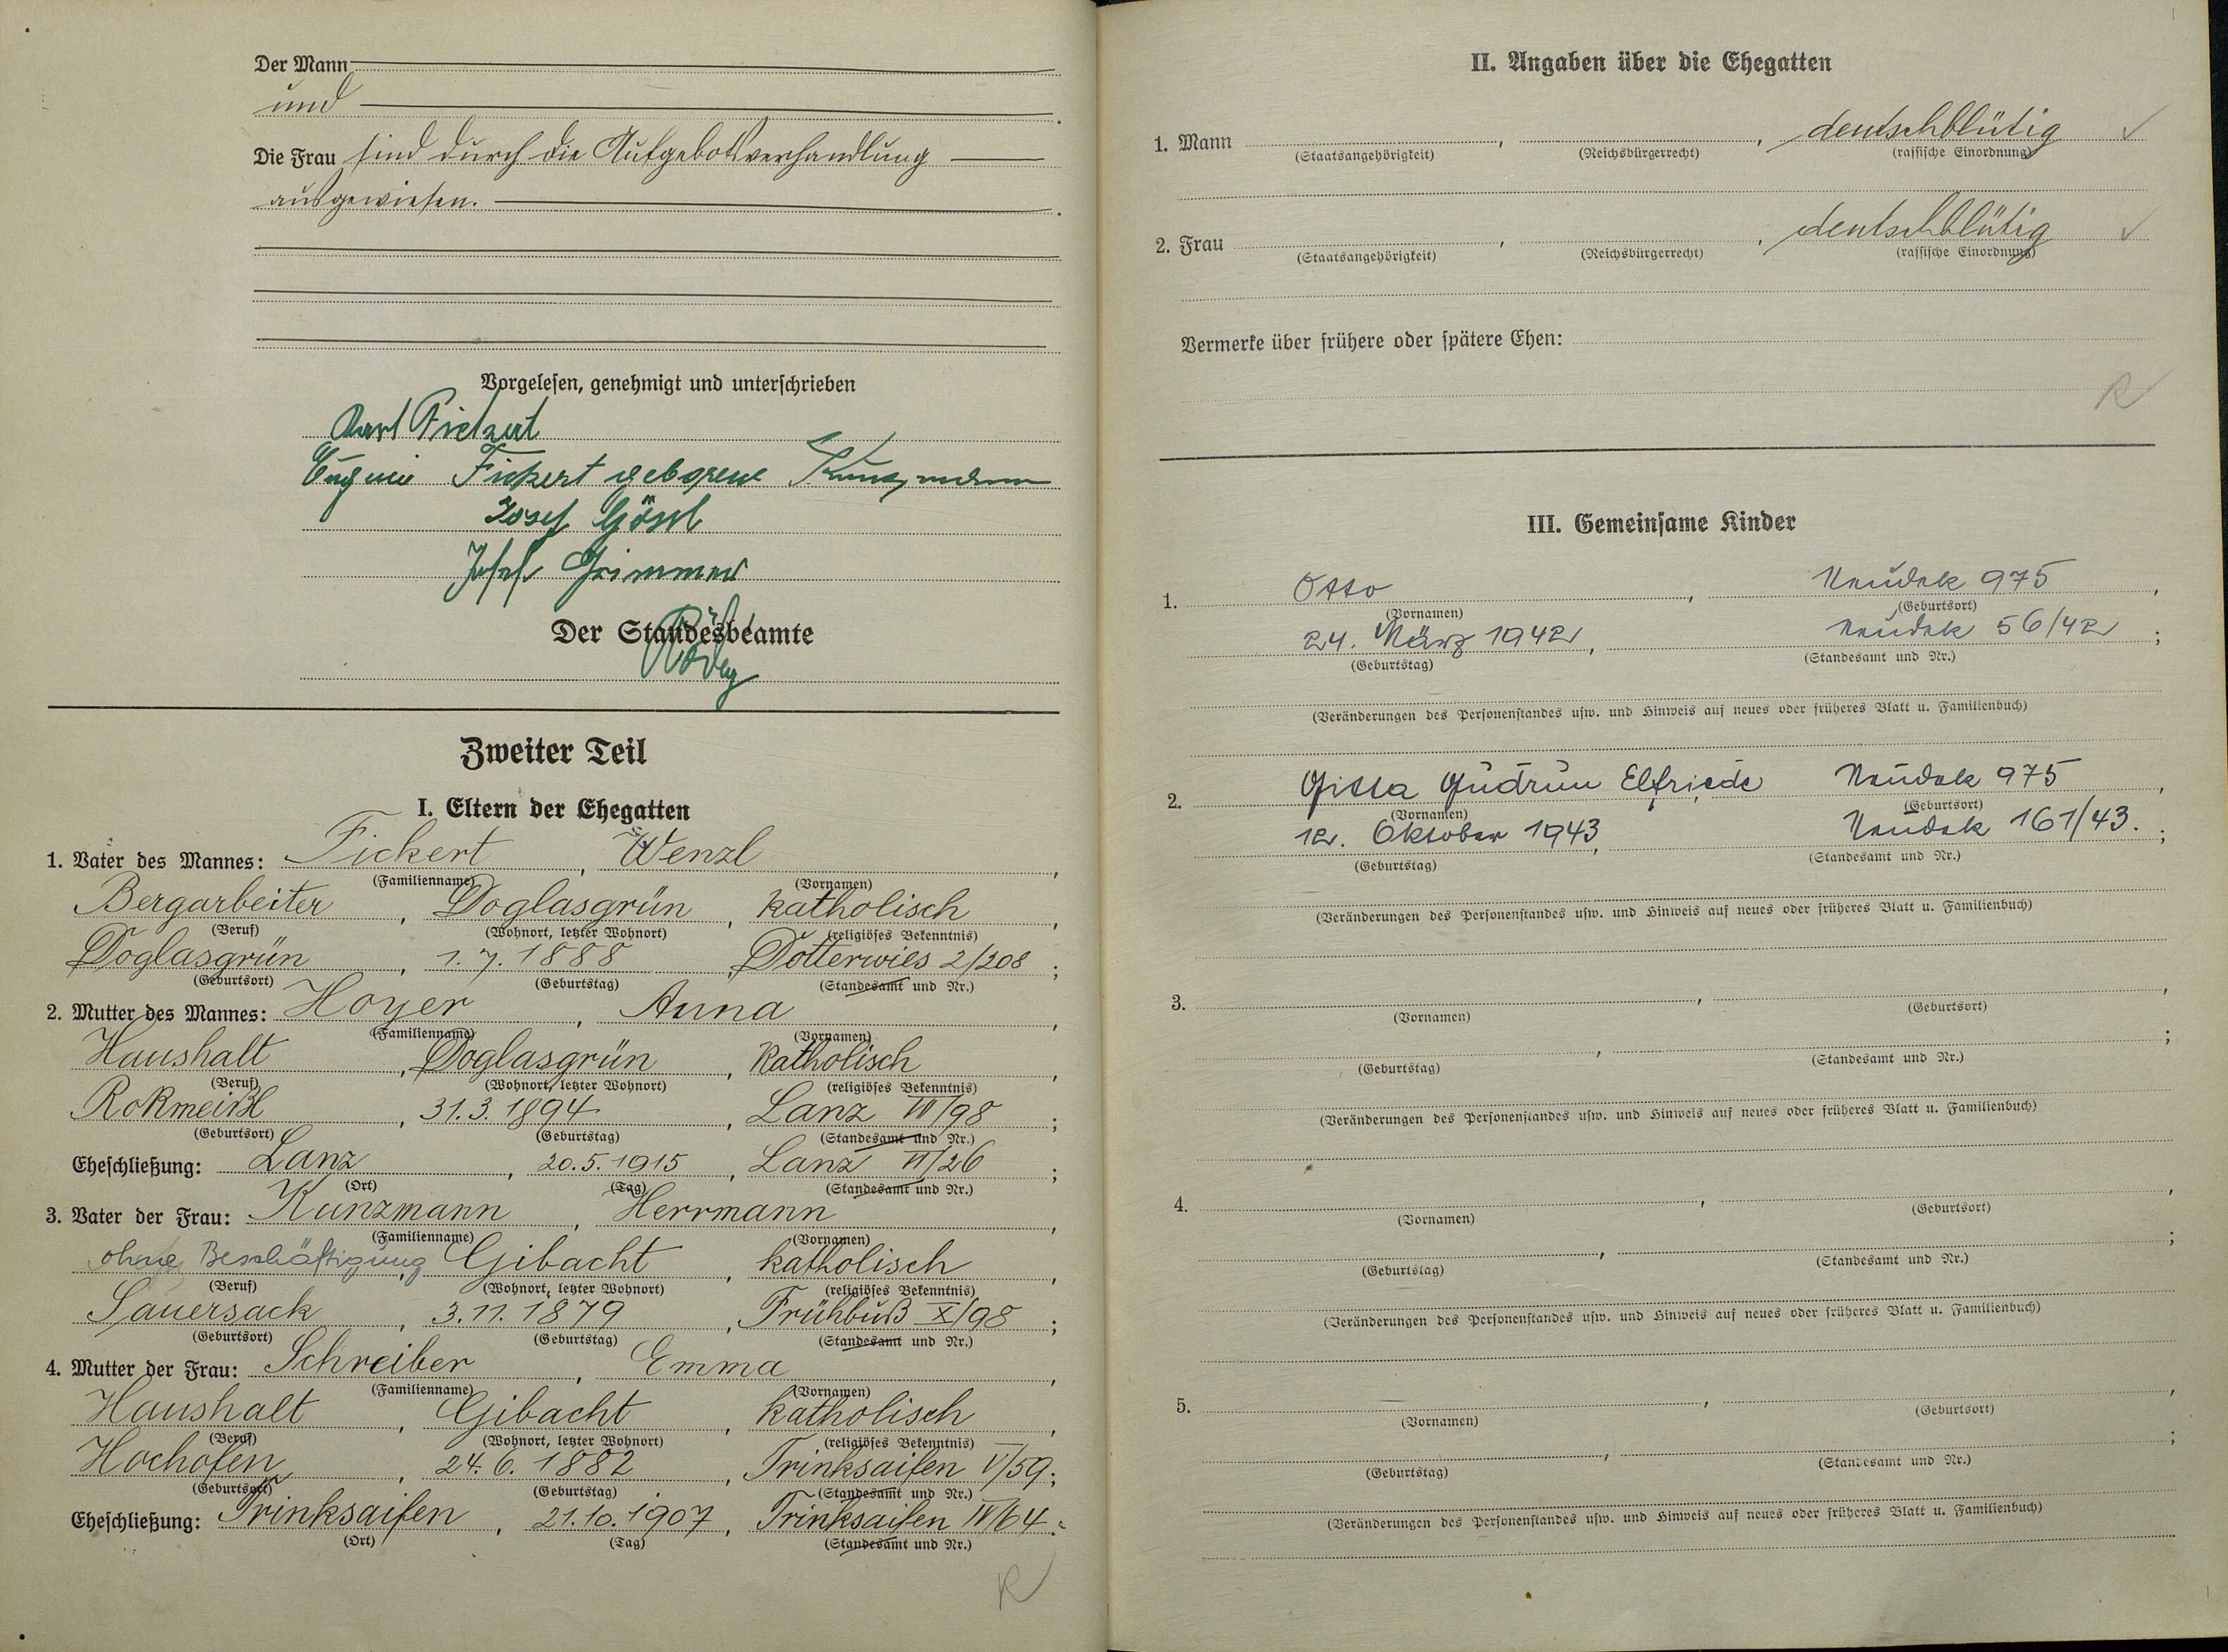 Der Mann
und
Die Frau sind durch die Aufgebotsverhandlung
ausgewiesen.
Vorgelesen, genehmigt und unterschrieben
Karl Fickert
Eugenie Fickert geborene Kunzmann
Josef Gössl
Josef Grimmer
Der Standesbeamte
Zweiter Teil
I. Eltern der Ehegatten
1. Vater des Mannes: Fickert, Wenzl,
(Familienname) (Vornamen)
Bergarbeiter, Doglasgrün, katholisch,
(Beruf) (Wohnort, letzter Wohnort) (religiöses Bekenntnis)
Doglasgrün, 1.7.1888, Dotterwies 2/208;
(Geburtsort) (Geburtstag) (Standesamt und Nr.)
2. Mutter des Mannes: Hoyer, Anna,
(Familienname) (Vornamen)
Haushalt, Doglasgrün, katholisch,
(Beruf) (Wohnort, letzter Wohnort) (religiöses Bekenntnis)
Rokmeißl, 31.3.1894, Lanz VII/98;
(Geburtsort) (Geburtstag) (Standesamt und Nr.)
Eheschließung: Lanz, 20.5.1915, Lanz VI/26;
(Ort) (Tag) (Standesamt und Nr.)
3. Vater der Frau: Kunzmann, Herrmann,
(Familienname) (Vornamen)
ohne Beschäftigung, Gibacht, katholisch,
(Beruf) (Wohnort, letzter Wohnort) (religiöses Bekenntnis)
Sauersack, 3.11.1879, Frühbuß X/98;
(Geburtsort) (Geburtstag) (Standesamt und Nr.)
4. Mutter der Frau: Schreiber, Emma,
(Familienname) (Vornamen)
Haushalt, Gibacht, katholisch,
(Beruf) (Wohnort, letzter Wohnort) (religiöses Bekenntnis)
Hochofen, 24.6.1882, Trinksaifen V/59;
(Geburtsort) (Geburtstag) (Standesamt und Nr.)
Eheschließung: Trinksaifen, 21.10.1907, Trinksaifen IV/64.
(Ort) (Tag) (Standesamt und Nr.)
R
II. Angaben über die Ehegatten
1. Mann , , deutschblütig ✓
(Staatsangehörigkeit) (Reichsbürgerrecht) (rassische Einordnung)
2. Frau , , deutschblütig ✓
(Staatsangehörigkeit) (Reichsbürgerrecht) (rassische Einordnung)
Vermerke über frühere oder spätere Ehen:
R
III. Gemeinsame Kinder
1. Otto, Neudek 975,
(Vornamen) (Geburtsort)
24. März 1942, Neudek 56/42;
(Geburtstag) (Standesamt und Nr.)
(Veränderungen des Personenstandes usw. und Hinweis auf neues oder früheres Blatt u. Familienbuch)
2. Gitta Gudrun Elfriede Neudek 975,
(Vornamen) (Geburtsort)
12. Oktober 1943, Neudek 161/43.;
(Geburtstag) (Standesamt und Nr.)
(Veränderungen des Personenstandes usw. und Hinweis auf neues oder früheres Blatt u. Familienbuch)
3. , ,
(Vornamen) (Geburtsort)
, ;
(Geburtstag) (Standesamt und Nr.)
(Veränderungen des Personenstandes usw. und Hinweis auf neues oder früheres Blatt u. Familienbuch)
4. , ,
(Vornamen) (Geburtsort)
, ;
(Geburtstag) (Standesamt und Nr.)
(Veränderungen des Personenstandes usw. und Hinweis auf neues oder früheres Blatt u. Familienbuch)
5. , ,
(Vornamen) (Geburtsort)
, ;
(Geburtstag) (Standesamt und Nr.)
(Veränderungen des Personenstandes usw. und Hinweis auf neues oder früheres Blatt u. Familienbuch)